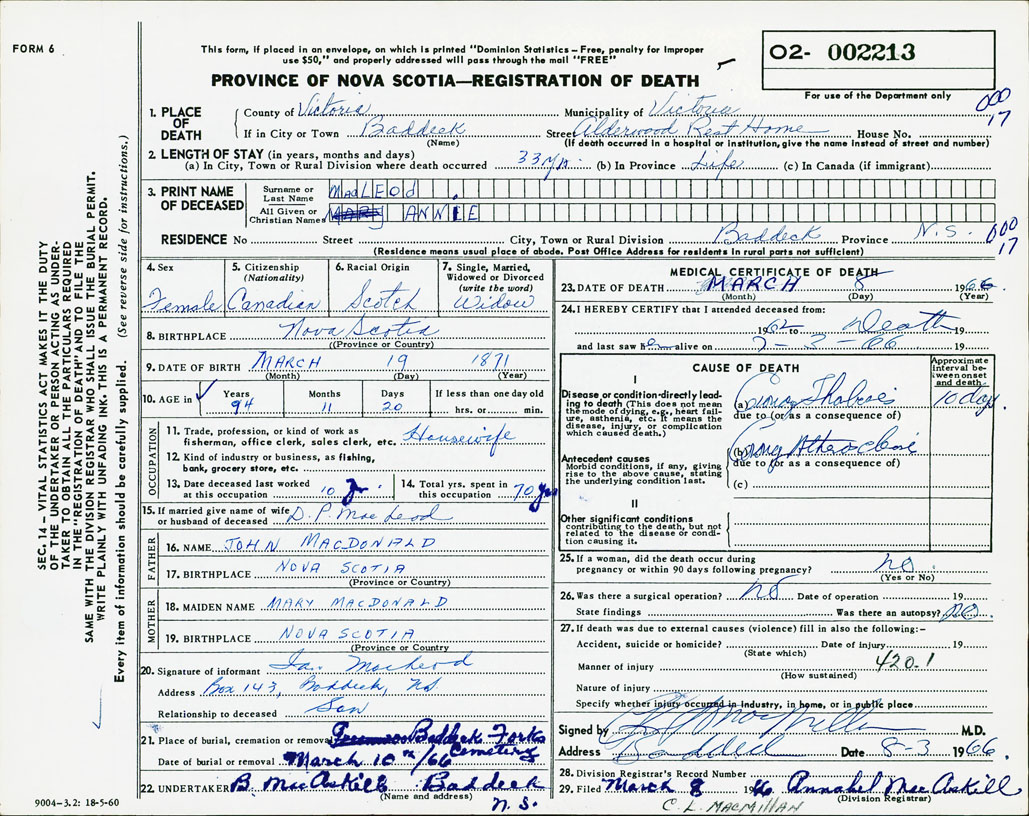 FORM 6
This form, if placed in an envelope, on which is printed "Dominion Statistics – Free, penalty for improper
use $50," and properly addressed will pass through the mail "FREE"
PROVINCE OF NOVA SCOTIA—REGISTRATION OF DEATH
O2- 002213
For use of the Department only
000
17
1. PLACE OF DEATH County of Victoria Municipality of Victoria
If in City or Town Baddeck Street Alderwood Rest Home House No.
(Name) (If death occurred in a hospital or institution, give the name instead of street and number)
2. LENGTH OF STAY (in years, months and days)
(a) In City, Town or Rural Division where death occurred 33 yrs. (b) In Province Life (c) In Canada (if immigrant)
3. PRINT NAME OF DECEASED
Surname or Last Name MacLEOD
All Given or Christian Names MARY ANNIE
RESIDENCE No Street City, Town or Rural Division Baddeck Province N.S.
000
17
(Residence means usual place of abode. Post Office Address for residents in rural parts not sufficient)
4. Sex Female
5. Citizenship (Nationality) Canadian
6. Racial Origin Scotch
7. Single, Married, Widowed or Divorced (write the word) Widow
8. BIRTHPLACE Nova Scotia
(Province or Country)
9. DATE OF BIRTH MARCH 19 1871
(Month) (Day) (Year)
10. AGE in Years 94 Months 11 Days 20 If less than one day old hrs. or min.
OCCUPATION
11. Trade, profession, or kind of work as fisherman, office clerk, sales clerk, etc. Housewife
12. Kind of industry or business, as fishing, bank, grocery store, etc.
13. Date deceased last worked at this occupation 10 yr.
14. Total yrs. spent in this occupation 70 yrs
15. If married give name of wife or husband of deceased D. P. MacLeod
FATHER
16. NAME JOHN MACDONALD
17. BIRTHPLACE NOVA SCOTIA
(Province or Country)
MOTHER
18. MAIDEN NAME MARY MACDONALD
19. BIRTHPLACE NOVA SCOTIA
(Province or Country)
20. Signature of informant Ian MacLeod
Address Box 143, Baddeck, NS
Relationship to deceased Son
21. Place of burial, cremation or removal Baddeck Forks Cemetery
Date of burial or removal March 10th/66
22. UNDERTAKER B. MacAskill Baddeck N.S.
(Name and address)
MEDICAL CERTIFICATE OF DEATH
23. DATE OF DEATH MARCH 8 1966
(Month) (Day) (Year)
24. I HEREBY CERTIFY that I attended deceased from:
1962 to Death 19
and last saw her alive on 7-3-66 19
CAUSE OF DEATH
Approximate interval between onset and death
I
Disease or condition directly leading to death (This does not mean the mode of dying, e.g., heart failure, asthenia, etc. It means the disease, injury, or complication which caused death.)
(a) 10 days
due to (or as a consequence of)
Antecedent causes
Morbid conditions, if any, giving rise to the above cause, stating the underlying condition last.
(b)
due to (or as a consequence of)
(c)
II
Other significant conditions contributing to the death, but not related to the disease or condition causing it.
25. If a woman, did the death occur during
pregnancy or within 90 days following pregnancy? no
(Yes or No)
26. Was there a surgical operation? no Date of operation 19
State findings Was there an autopsy? no
27. If death was due to external causes (violence) fill in also the following:–
Accident, suicide or homicide? Date of injury 19
(State which)
Manner of injury 420.1
(How sustained)
Nature of injury
Specify whether injury occurred in industry, in home, or in public place
Signed by M.D.
Address Baddeck Date 8-3 1966
28. Division Registrar's Record Number
29. Filed March 8 1966 Annabel MacAskill
(Division Registrar)
C. L. MACMILLAN
SEC. 14 – VITAL STATISTICS ACT MAKES IT THE DUTY
OF THE UNDERTAKER OR PERSON ACTING AS UNDER-
TAKER TO OBTAIN ALL THE PARTICULARS REQUIRED
IN THE "REGISTRATION OF DEATH" AND TO FILE THE
SAME WITH THE DIVISION REGISTRAR WHO SHALL ISSUE THE BURIAL PERMIT.
WRITE PLAINLY WITH UNFADING INK. THIS IS A PERMANENT RECORD.
Every item of information should be carefully supplied. (See reverse side for instructions.)
9004-3.2: 18-5-60